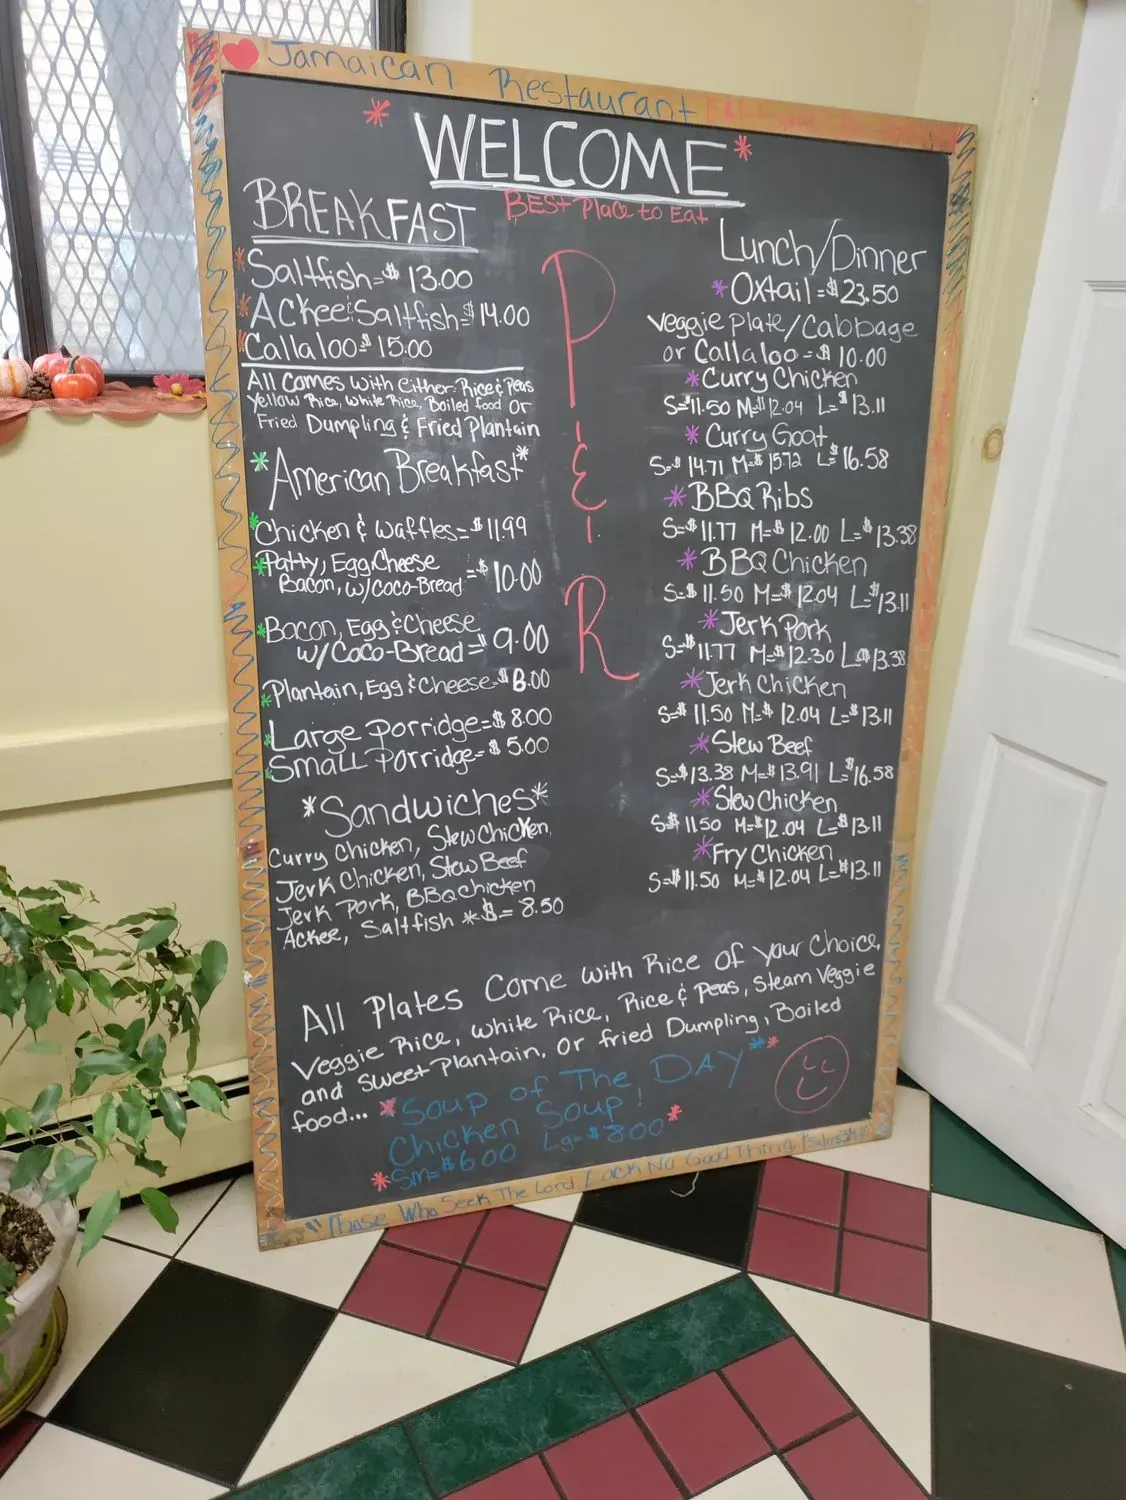 Jamaican Restaurant
* WELCOME *
BEST Place to Eat
P
&
R
BREAKFAST
* Saltfish=$ 13.00
* Ackee & Saltfish=$ 14.00
* Callaloo=$ 15.00
All Comes with Either: Rice & Peas
Yellow Rice, White Rice, Boiled food Or
Fried Dumpling & Fried Plantain
* American Breakfast *
* Chicken & Waffles=$ 11.99
* Patty, Egg, Cheese
Bacon, w/Coco-Bread =$ 10.00
* Bacon, Egg & Cheese
w/Coco-Bread =$ 9.00
* Plantain, Egg & Cheese=$ 8.00
* Large Porridge=$ 8.00
* Small Porridge=$ 5.00
* Sandwiches *
Curry Chicken, Stew Chicken,
Jerk Chicken, Stew Beef
Jerk Pork, BBQ Chicken
Ackee, Saltfish *$= 8.50
Lunch/Dinner
* Oxtail =$ 23.50
Veggie Plate/Cabbage
or Callaloo=$ 10.00
* Curry Chicken
S=$11.50 M=$12.04 L=$13.11
* Curry Goat
S=$ 14.71 M=$ 15.72 L=$16.58
* BBQ Ribs
S=$11.77 M=$ 12.00 L=$13.38
* BBQ Chicken
S=$11.50 M=$12.04 L=$13.11
* Jerk Pork
S=$11.77 M=$12.30 L=$13.38
* Jerk Chicken
S=$ 11.50 M=$ 12.04 L=$13.11
* Stew Beef
S=$13.38 M=$13.91 L=$16.58
* Stew Chicken
S=$ 11.50 M=$12.04 L=$13.11
* Fry Chicken
S=$11.50 M=$12.04 L=$13.11
All Plates Come with Rice of your Choice,
Veggie Rice, White Rice, Rice & Peas, Steam Veggie
and Sweet Plantain, Or fried Dumpling, Boiled
food... * Soup of The DAY **
Chicken Soup!
* Sm=$6.00 Lg=$8.00 *
"Those Who Seek The Lord Lack No Good Thing